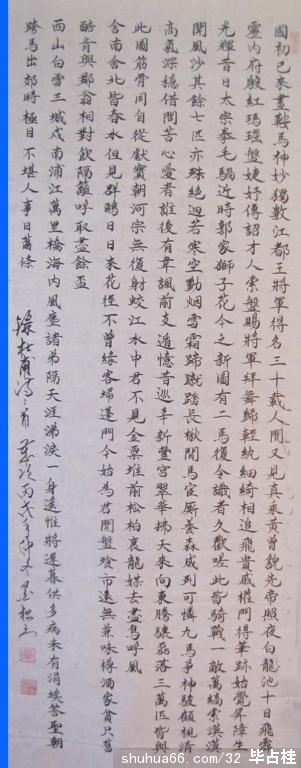 國初已來畫鞍馬神妙獨數江都王將軍得名三十載人間又見真乘黃曾貌先帝照夜白龍池十日飛霹
靂內府殷紅瑪瑙盤婕妤傳詔才人索盤賜將軍拜舞歸輕紈細綺相追飛貴戚權門得筆跡始覺屏障生
光輝昔日太宗拳毛騧近時郭家獅子花今之新圖有二馬復令識者久歎嗟此皆騎戰一敵萬縞素漠漠
開風沙其餘七匹亦殊絕迥若寒空動烟雪霜蹄蹴踏長楸間馬官廝養森成列可憐九馬爭神駿顧視清
高氣深穩借問苦心愛者誰後有韋諷前支遁憶昔巡幸新豐宮翠華拂天來向東騰驤磊落三萬匹皆與
此圖筋骨同自從獻寶朝河宗無復射蛟江水中君不見金粟堆前松柏裏龍媒去盡鳥呼風
舍南舍北皆春水但見群鷗日日來花徑不曾緣客掃蓬門今始為君開盤飧市遠無兼味樽酒家貧只舊
醅肯與鄰翁相對飲隔籬呼取盡餘盃
西山白雪三城戍南浦江萬里橋海內風塵諸弟隔天涯涕淚一身遙惟將遲暮供多病未有涓埃答聖朝
跨馬出郊時極目不堪人事日蕭條
錄杜甫詩首歲次丙戌年
shuhua66.com/32 毕占桂